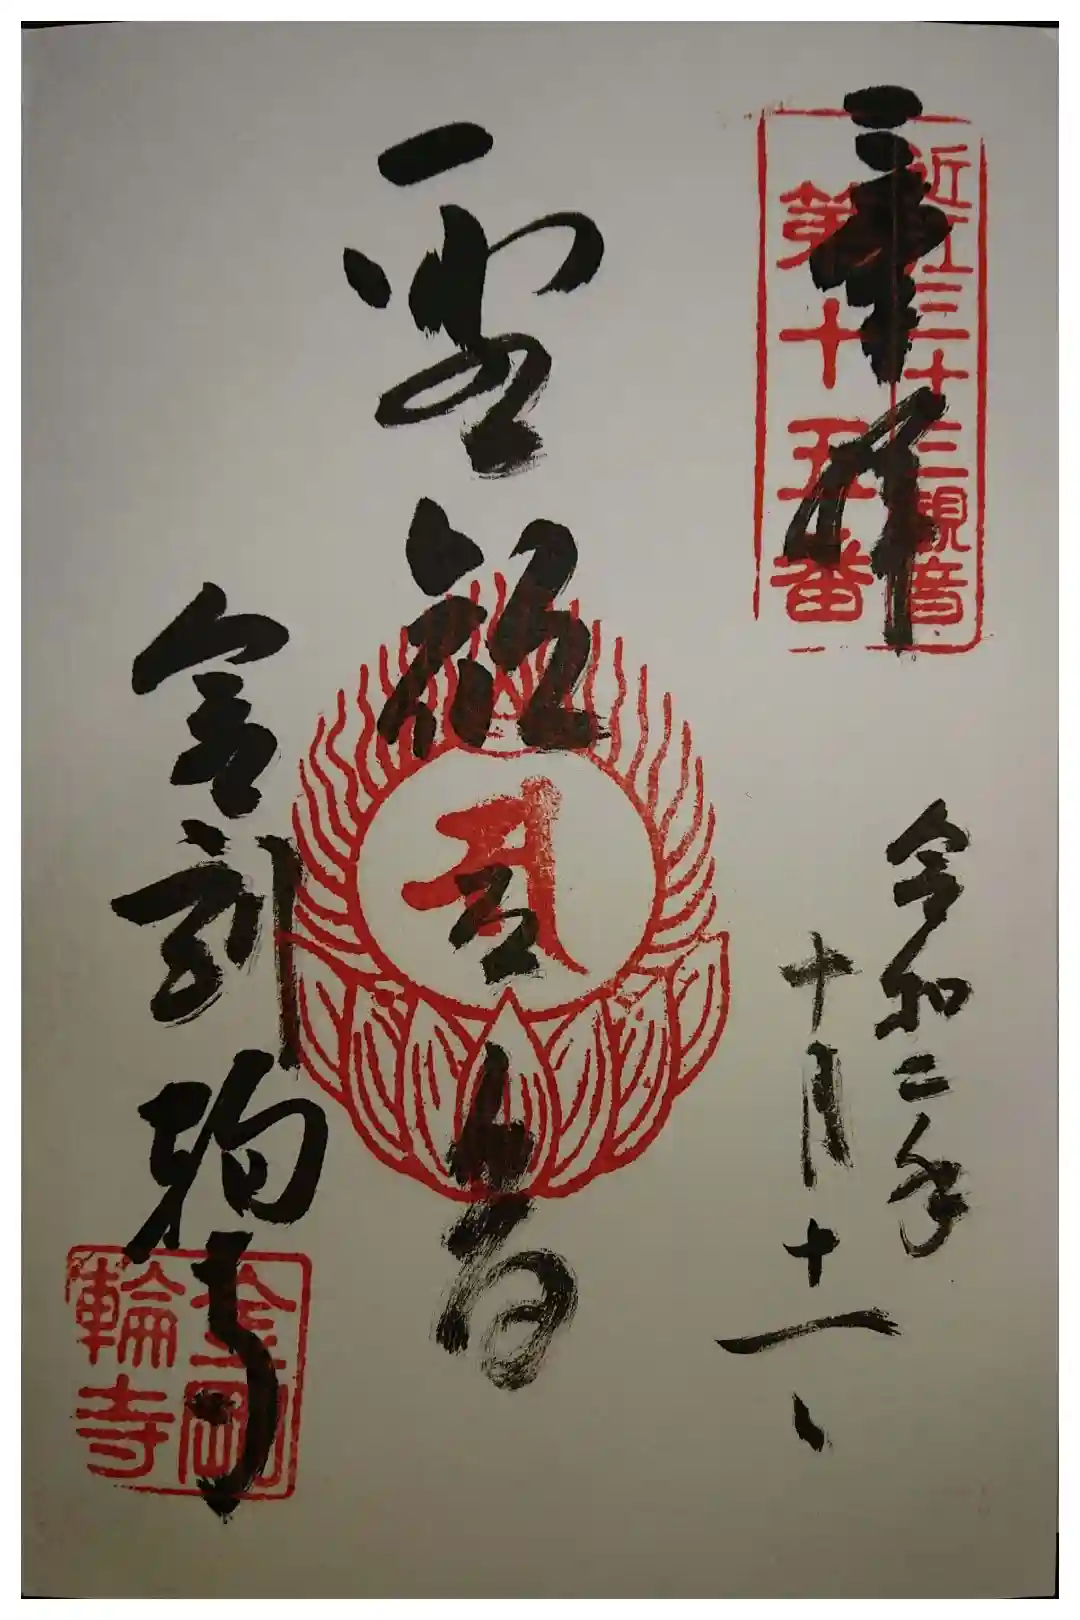 奉拝
近江三十三観音
第十五番
令和二年
十月十一日
金剛輪寺
金剛
輪寺